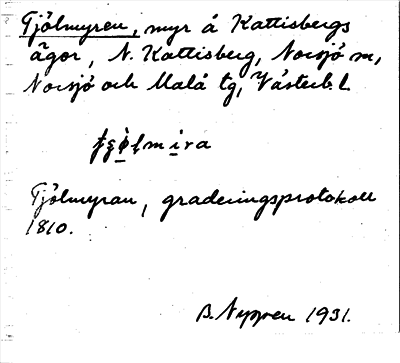 Tjölmyren, myr å Kattisbergs
ägor, N. Kattisberg, Norsjö sn,
Norsjö och Malå tg, Västerb. l.
Tjölmyran, graderingsprotokoll
1810.
B. Nygren 1931.